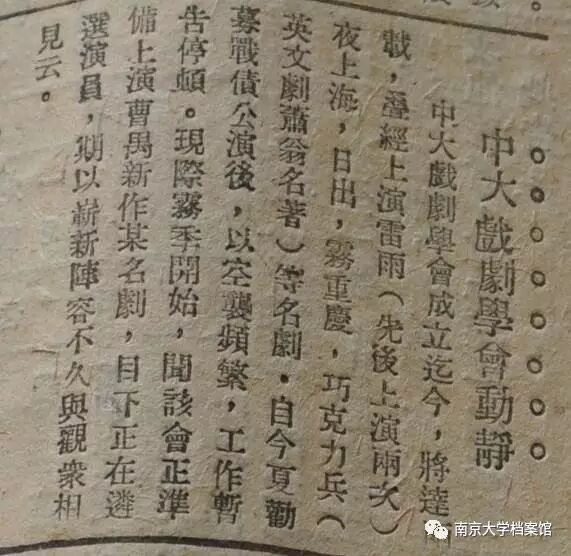 中大戲劇學會動靜
中大戲劇學會成立迄今，將達
載，叠經上演雷雨（先後上演兩次）
夜上海，日出，霧重慶，巧克力兵（
英文劇蕭翁名著）等名劇．自今夏勸
募戰債公演後，以空襲頻繁，工作暫
告停頓。現際霧季開始，聞該會正準
備上演曹禺新作某名劇，目下正在遴
選演員，期以嶄新陣容不久與觀衆相
見云。
南京大学档案馆